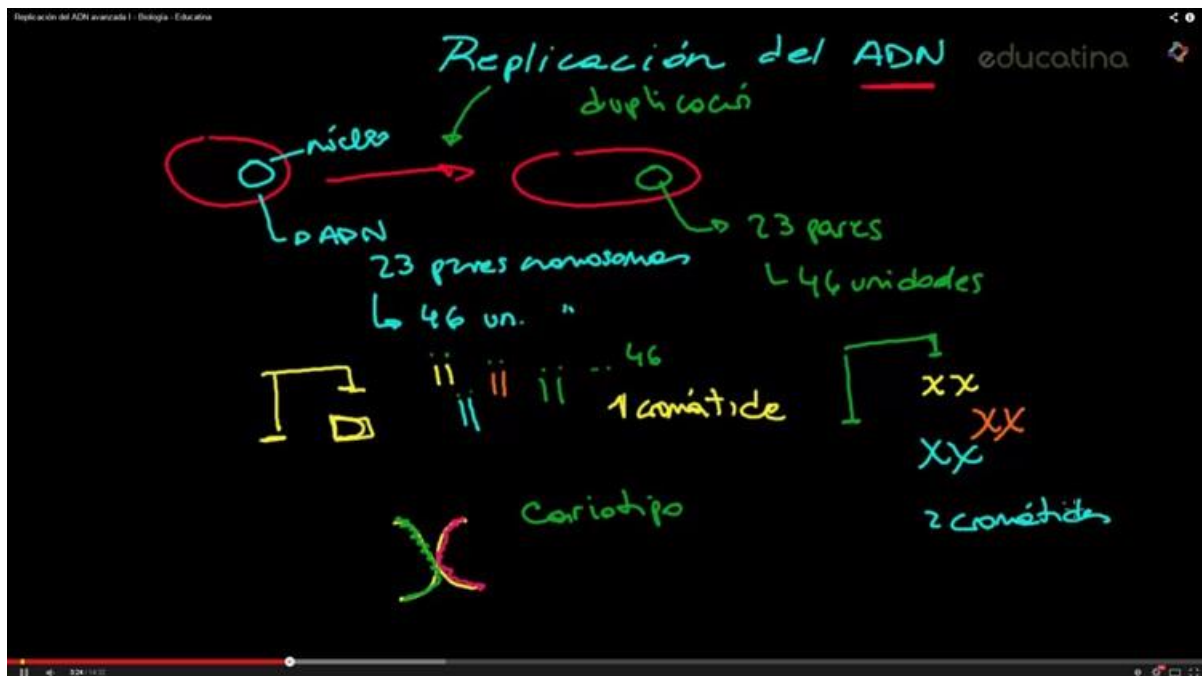 Replicación del ADN avanzada I - Biología - Educatina
Replicación del ADN
educatina
duplicació
núcleo
ADN
23 pares
23 pares cromosomas
46 unidades
46 un. "
.. 46
1 cromátide
XX
XX
XX
Cariotipo
2 cromátides
3:24 / 14:32